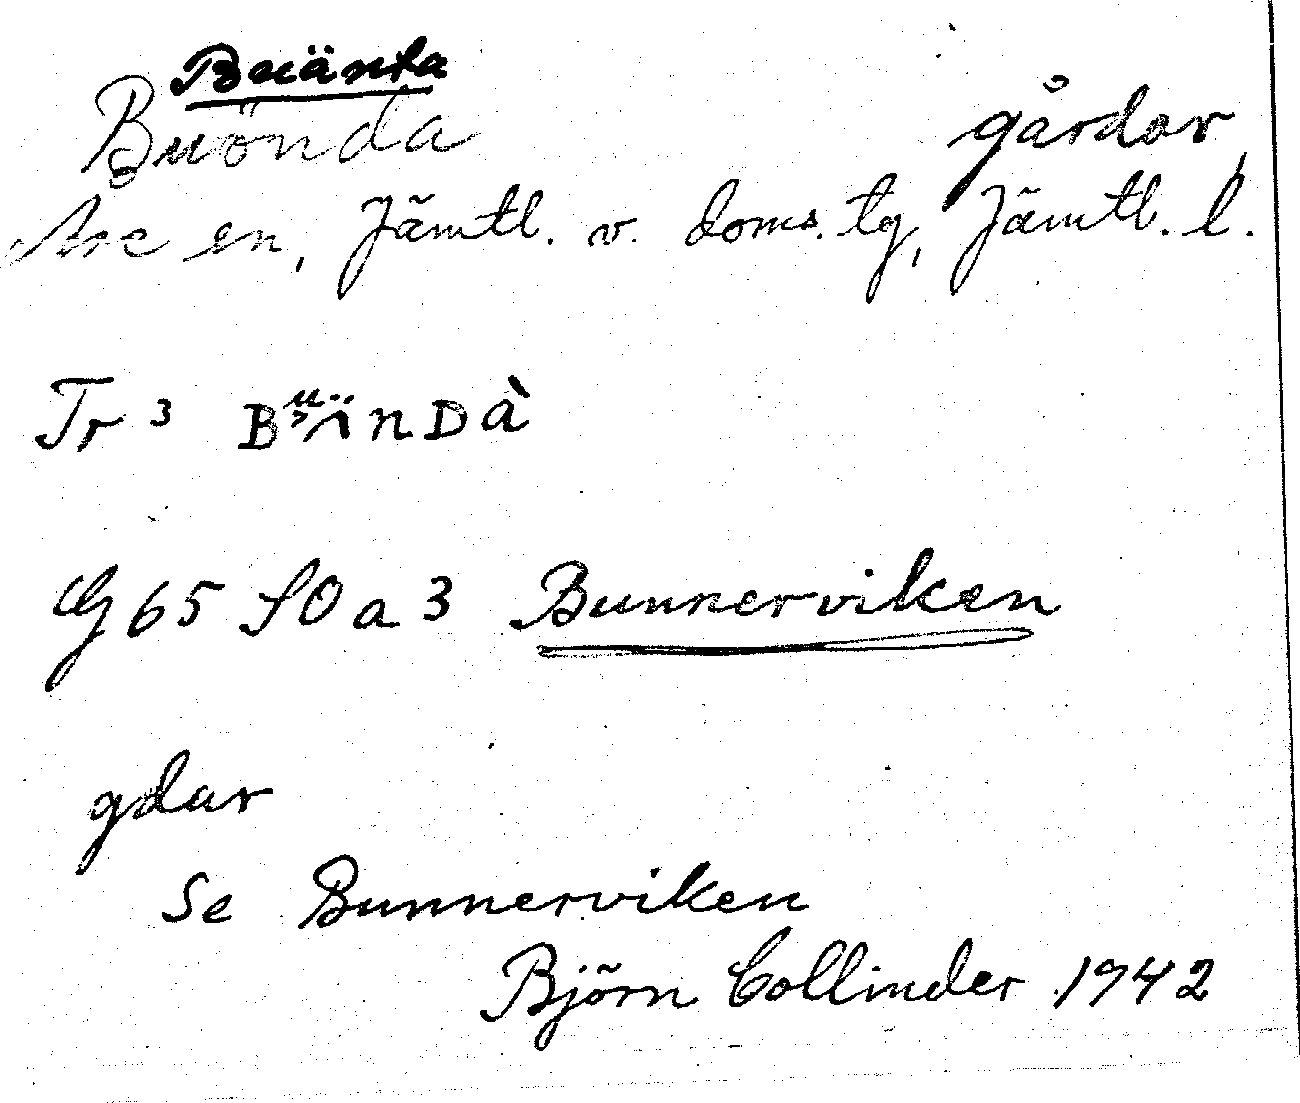 Buänta
Buönda gårdar,
Åre sn, Jämtl. v. doms. tg, Jämtl. l.
Tr 3
G 65 SO a 3 Bunnerviken
gdar
Se Bunnerviken
Björn Collinder 1942